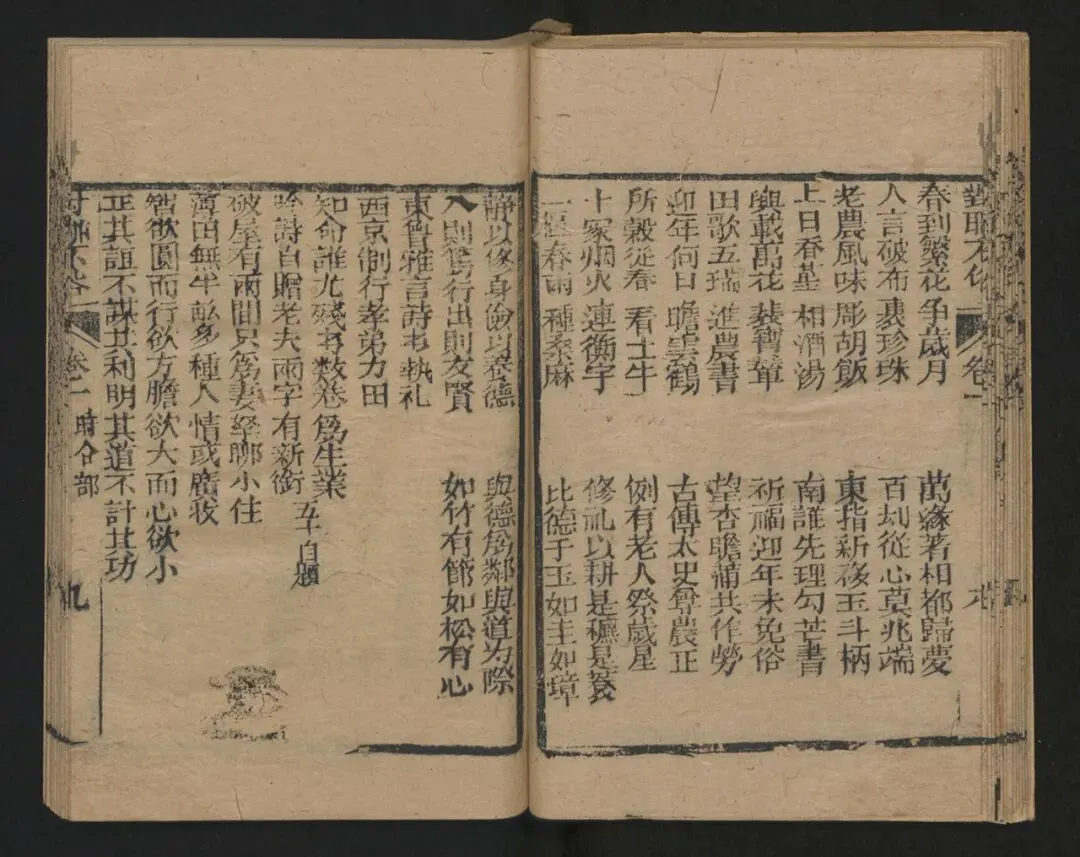 卷
春到繁花爭歲月 萬緣著相都歸夢
人言破布裹珍珠 百刦從心莫兆端
老農風味彫胡飯 東指新移玉斗柄
上日春 相酒湯 南誰先理勾芒書
輿載萬花裝寶輦 祈福迎年未免俗
田歌五瑞進農書 望杏瞻蒲共作勞
迎年何日瞻雲鶴 古傳太史尊農正
所穀從春看土牛 例有老人祭歲星
十家烟火連衡宇 修礼以耕是穮是蓘
一犁春雨種桑麻 比德于玉如圭如璋
靜以修身儉以養德 與德為鄰與道为際
入則篤行出則友賢 如竹有節如松有心
東魯雅言詩書執礼
西京制行孝弟力田
知命誰尤殘書数卷為生業
吟詩自贈老夫兩字有新銜 五十自題
破屋有兩間只為妻孥聊小住
薄田無半畝多種人情或廣收
智欲圓而行欲方膽欲大而心欲小
正其誼不謀其利明其道不計其功
卷二 時令部 九